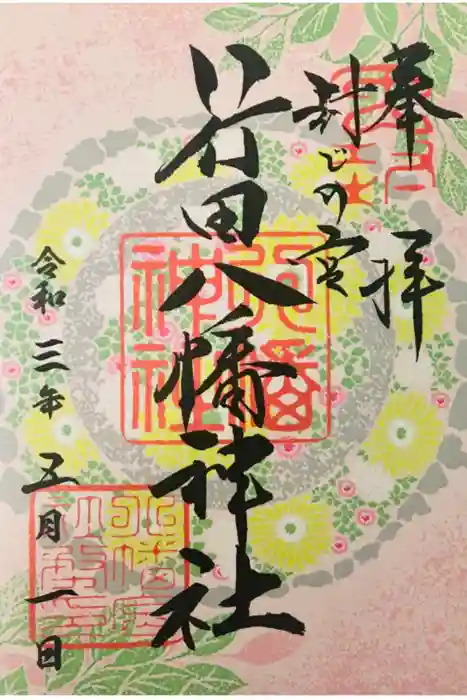 奉拝
封じの宮
行田八幡神社
八幡神社
令和三年五月一日